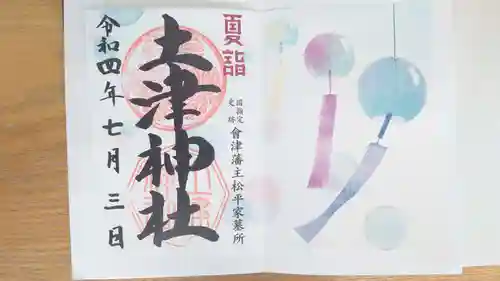 夏詣
国指定
史跡
會津藩主松平家墓所
土津神社
令和四年七月三日